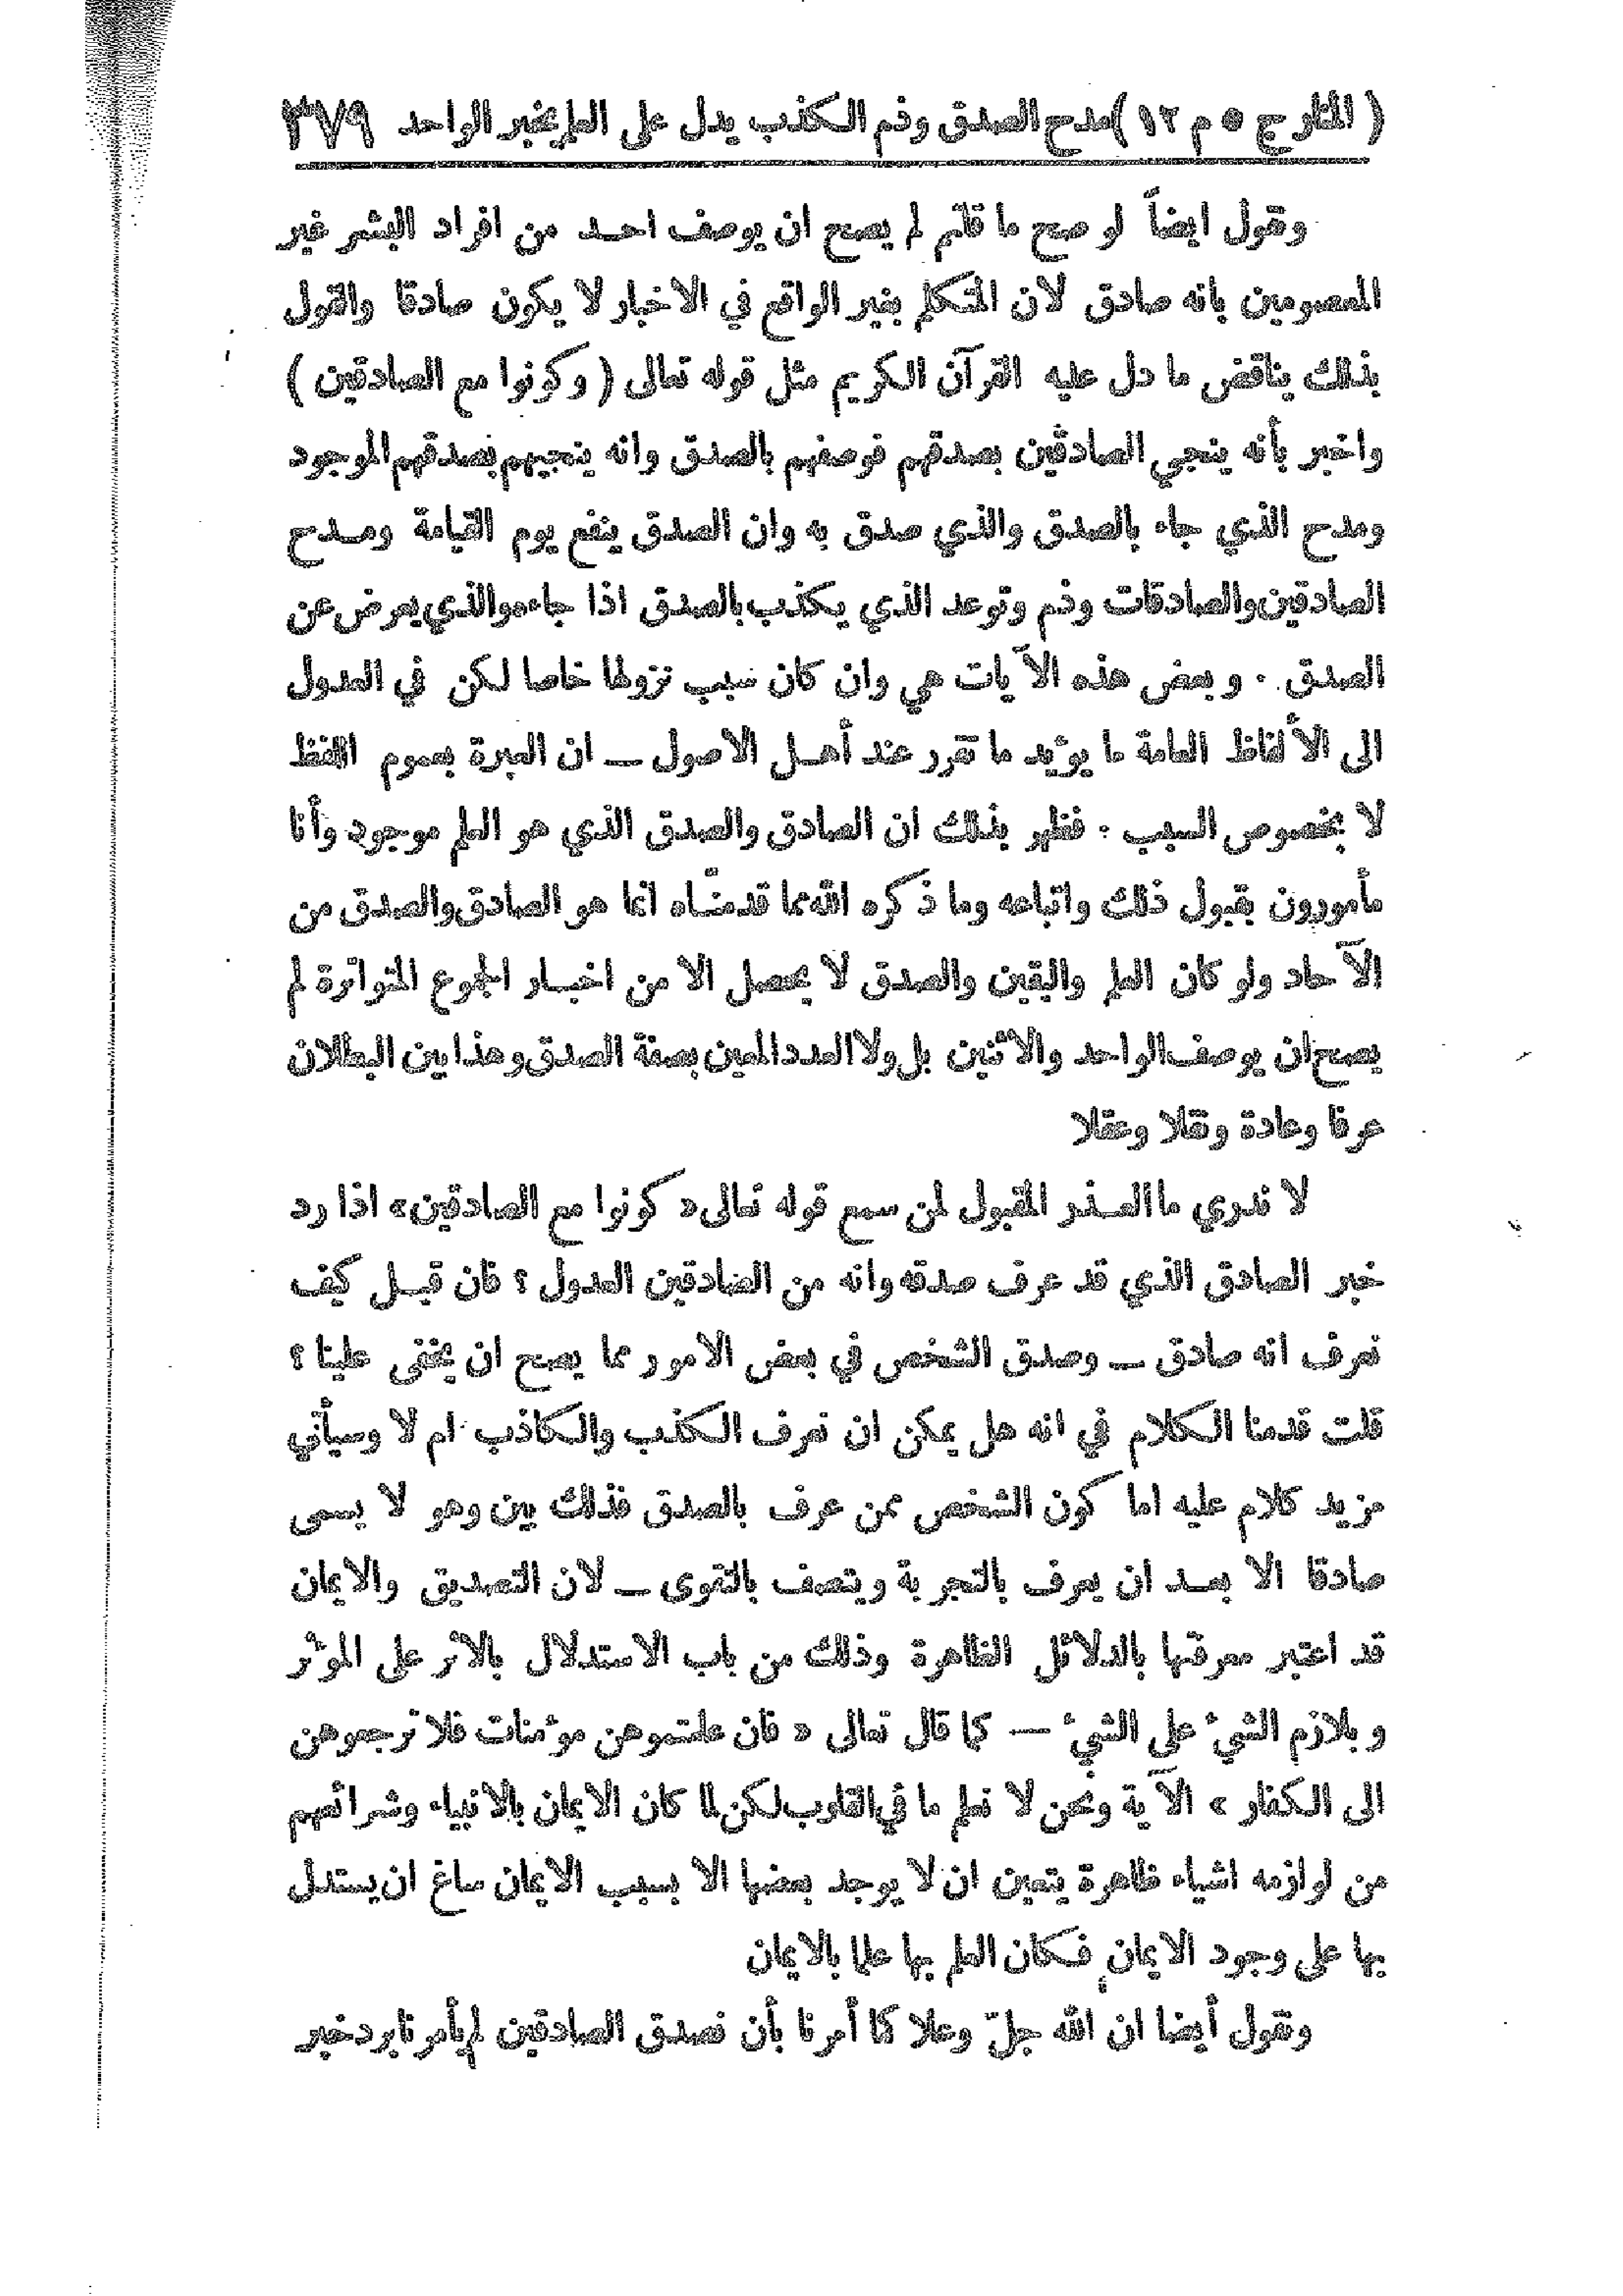 ( المنار ج ٥ م ١٢ ) مدح الصدق وذم الكذب يدل على العلم بخبر الواحد ٣٧٩
ونقول ايضاً لو صح ما قلتم لم يصح ان يوصف احد من افراد البشر غير
المعصومين بانه صادق لان المتكلم بغير الواقع في الاخبار لا يكون صادقا والقول
بذلك يناقض ما دل عليه القرآن الكريم مثل قوله تعالى ( وكونوا مع الصادقين )
واخبر بأنه ينجي الصادقين بصدقهم فوصفهم بالصدق وانه ينجيهم بصدقهم الموجود
ومدح الذي جاء بالصدق والذي صدق به وان الصدق ينفع يوم القيامة ومدح
الصادقين والصادقات وذم وتوعد الذي يكذب بالصدق اذا جاءه والذي يعرض عن
الصدق . وبعض هذه الآيات هي وان كان سبب نزولها خاصا لكن في العدول
الى الألفاظ العامة ما يؤيد ما تقرر عند أهل الاصول ــ ان العبرة بعموم اللفظ
لا بخصوص السبب . فظهر بذلك ان الصادق والصدق الذي هو العلم موجود وأنا
مأمورون بقبول ذلك واتباعه وما ذكره الله مما قدمناه انما هو الصادق والصدق من
الآحاد ولو كان العلم واليقين والصدق لا يحصل الا من اخبار الجموع المتواترة لم
يصح ان يوصف الواحد والاثنين بل ولا العدد المعين بصفة الصدق وهذا بين البطلان
عرفا وعادة ونقلا وعقلا
لا ندري ما العذر المقبول لمن سمع قوله تعالى « كونوا مع الصادقين » اذا رد
خبر الصادق الذي قد عرف صدقه وانه من الصادقين العدول ؟ فان قيل كيف
نعرف انه صادق ــ وصدق الشخص في بعض الامور مما يصح ان يخفى علينا ؟
قلت قدمنا الكلام في انه هل يمكن ان نعرف الكذب والكاذب ام لا وسيأتي
مزيد كلام عليه اما كون الشخص ممن عرف بالصدق فذلك بين وهو لا يسمى
صادقا الا بعد ان يعرف بالتجربة ويتصف بالتقوى ــ لان التصديق والايمان
قد اعتبر معرفتها بالدلائل الظاهرة وذلك من باب الاستدلال بالاثر على المؤثر
وبلازم الشيء على الشيء ــ كما قال تعالى « فان علمتموهن مؤمنات فلا ترجعوهن
الى الكفار » الآية ونحن لا نعلم ما في القلوب لكن لما كان الايمان بالانبياء وشرائعهم
من لوازمه اشياء ظاهرة يتعين ان لا يوجد بعضها الا بسبب الايمان ساغ ان يستدل
بها على وجود الايمان فكان العلم بها علما بالايمان
ونقول أيضا ان الله جلّ وعلا كما أمرنا بأن نصدق الصادقين لم يأمرنا برد خبر